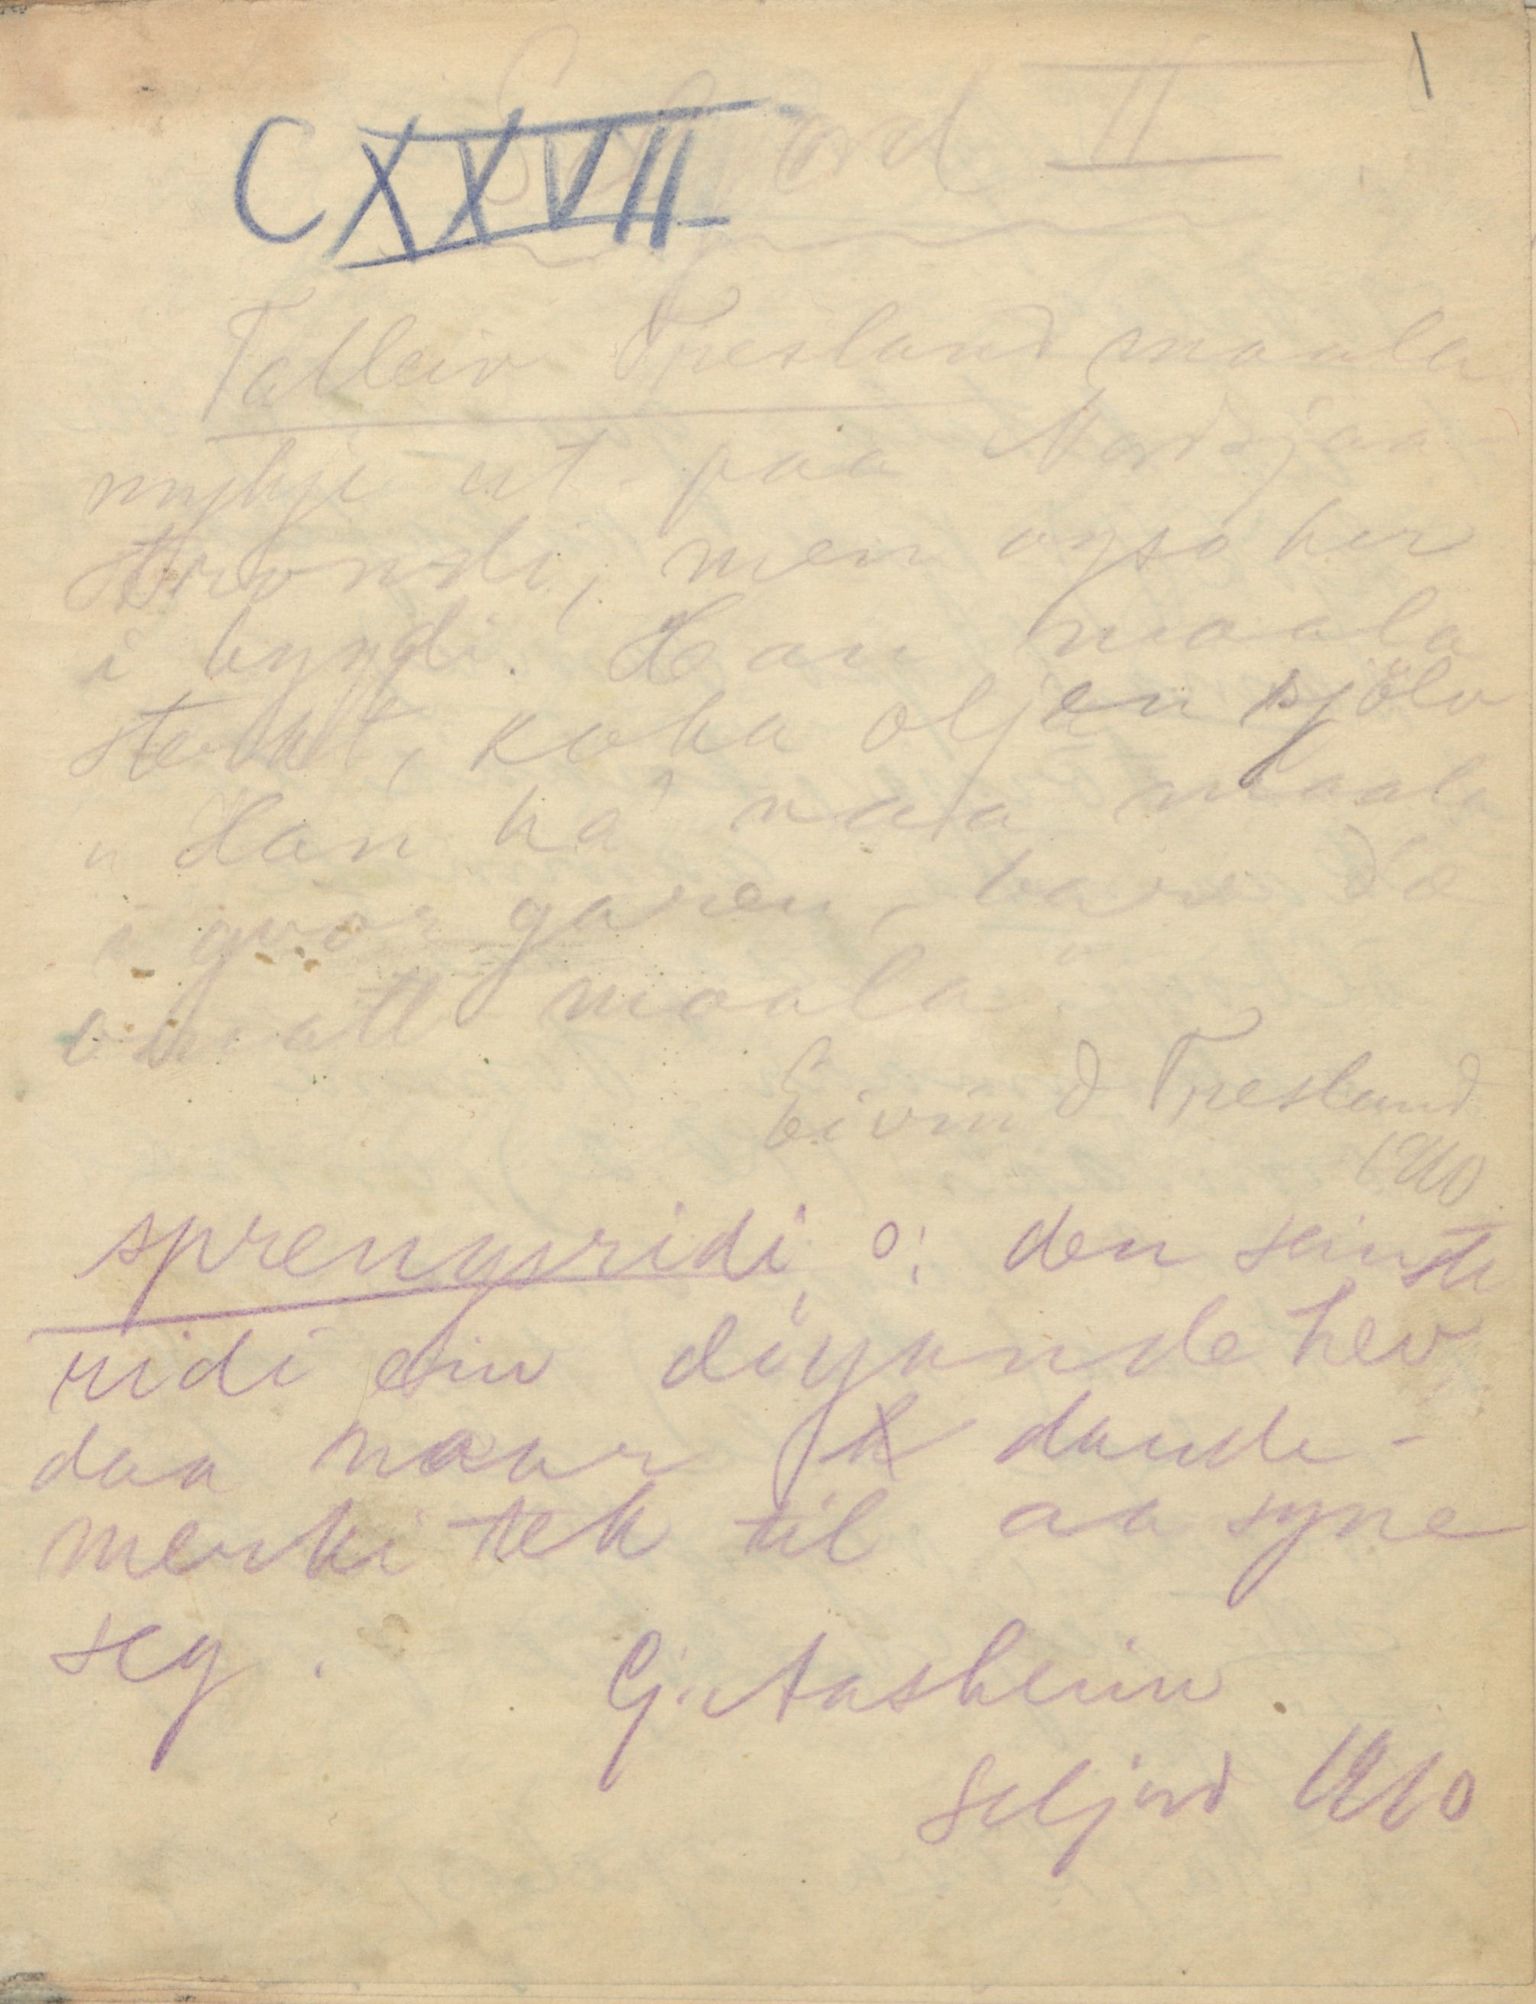 1
Seljord II
CXXVII
Talleiv Tresland maala
mykje ut paa Nordsjaa-
strondi, men ogso her
i bygdi. Han maala
sterkt, koka oljen sjölv
"Han ha' maala
i gvor garen, bare d'æ
maala"
Eivind Tresland
1910
sprengridi, ɔ: den seinste
ridi ein döyande hev,
daa naar daude-
merki tek til aa syne
seg.
Gj. Aasheim.
Seljord 1910